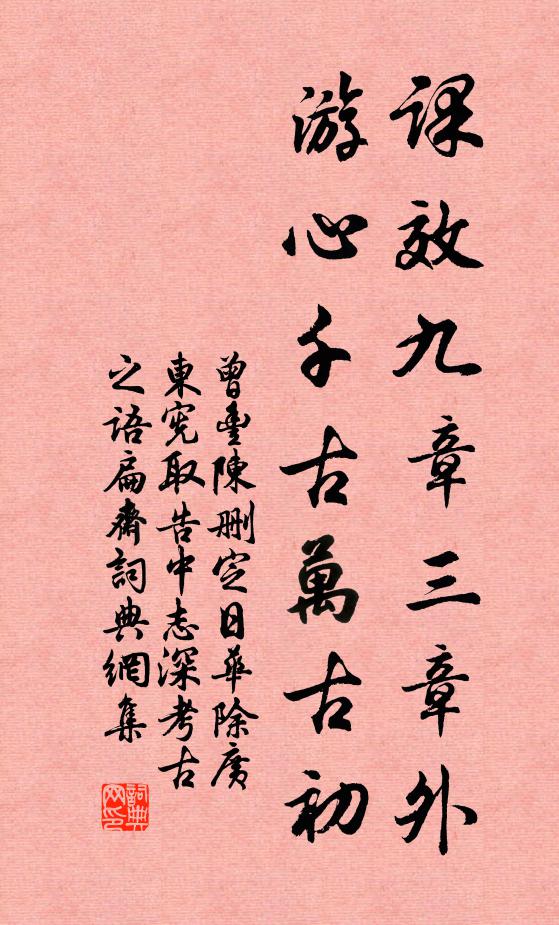 課效九章三章外
游心千古萬古初
曾豐陳刪定日華除廣
東憲取告中志深考古
之語扁齋詞典網集
詞典
网印